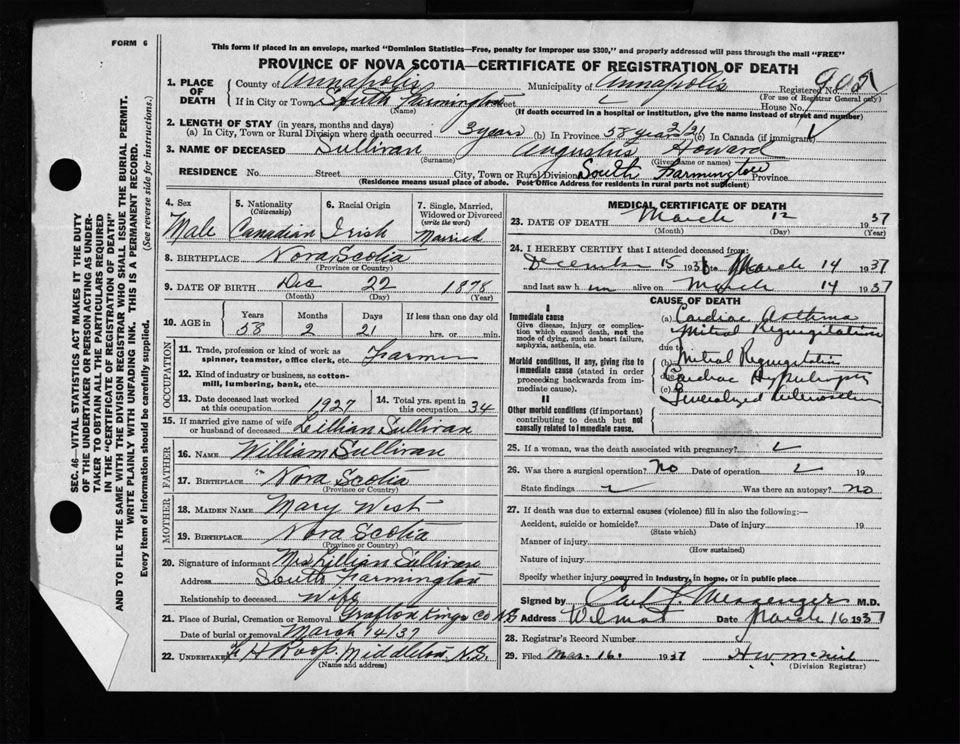 FORM 6
This form if placed in an envelope, marked "Dominion Statistics—Free, penalty for improper use $300," and properly addressed will pass through the mail "FREE"
PROVINCE OF NOVA SCOTIA—CERTIFICATE OF REGISTRATION OF DEATH
1. PLACE OF DEATH County of Annapolis Municipality of Annapolis Registered No. 905
(For use of Registrar General only)
If in City or Town South Farmington Street House No.
(Name) (If death occurred in a hospital or institution, give the name instead of street and number)
2. LENGTH OF STAY (in years, months and days)
(a) In City, Town or Rural Division where death occurred 3 years (b) In Province 58 years 2/21 (c) In Canada (if immigrant)
3. NAME OF DECEASED Sullivan Augustus Howard
(Surname) (Given name or names)
RESIDENCE No. Street City, Town or Rural Division South Farmington Province
(Residence means usual place of abode. Post Office Address for residents in rural parts not sufficient)
4. Sex Male
5. Nationality (Citizenship) Canadian
6. Racial Origin Irish
7. Single, Married, Widowed or Divorced (write the word) Married
8. BIRTHPLACE Nova Scotia
(Province or Country)
9. DATE OF BIRTH Dec 22 1878
(Month) (Day) (Year)
10. AGE in Years Months Days If less than one day old
58 2 21 hrs. or min.
OCCUPATION
11. Trade, profession or kind of work as spinner, teamster, office clerk, etc. Farmer
12. Kind of industry or business, as cotton-mill, lumbering, bank, etc.
13. Date deceased last worked at this occupation 1927 14. Total yrs. spent in this occupation 34
15. If married give name of wife or husband of deceased Lillian Sullivan
FATHER
16. NAME William Sullivan
17. BIRTHPLACE Nova Scotia
(Province or Country)
MOTHER
18. MAIDEN NAME Mary West
19. BIRTHPLACE Nova Scotia
(Province or Country)
20. Signature of informant Mrs Lillian Sullivan
Address South Farmington
Relationship to deceased Wife
21. Place of Burial, Cremation or Removal Grafton Kings Co NS
Date of burial or removal March 14/37
22. UNDERTAKER H Roop. Middleton N.S.
(Name and address)
MEDICAL CERTIFICATE OF DEATH
23. DATE OF DEATH March 12 1937
(Month) (Day) (Year)
24. I HEREBY CERTIFY that I attended deceased from:
December 15 1936 to March 14 1937
and last saw him alive on March 14 1937
CAUSE OF DEATH
I
Immediate cause
Give disease, injury or complication which caused death, not the mode of dying, such as heart failure, asphyxia, asthenia, etc.
(a) Cardiac Asthma
Mitral Regurgitation
due to
Morbid conditions, if any, giving rise to immediate cause (stated in order proceeding backwards from immediate cause).
(b) Mitral Regurgitation
due to Cardiac Hypertrophy
(c) Generalized
II
Other morbid conditions (if important) contributing to death but not causally related to immediate cause.
25. If a woman, was the death associated with pregnancy?
26. Was there a surgical operation? No Date of operation 19
State findings Was there an autopsy? No
27. If death was due to external causes (violence) fill in also the following:—
Accident, suicide or homicide? Date of injury 19
(State which)
Manner of injury
(How sustained)
Nature of injury
Specify whether injury occurred in Industry, in home, or in public place
Signed by Carl Messenger M.D.
Address Wilmot Date March 16 1937
28. Registrar's Record Number
29. Filed Mar. 16. 1937 H. W. McNeil
(Division Registrar)
SEC. 46—VITAL STATISTICS ACT MAKES IT THE DUTY
OF THE UNDERTAKER OR PERSON ACTING AS UNDER-
TAKER TO OBTAIN ALL THE PARTICULARS REQUIRED
IN THE "CERTIFICATE OF REGISTRATION OF DEATH"
AND TO FILE THE SAME WITH THE DIVISION REGISTRAR WHO SHALL ISSUE THE BURIAL PERMIT.
WRITE PLAINLY WITH UNFADING INK. THIS IS A PERMANENT RECORD.
Every item of information should be carefully supplied. (See reverse side for instructions.)